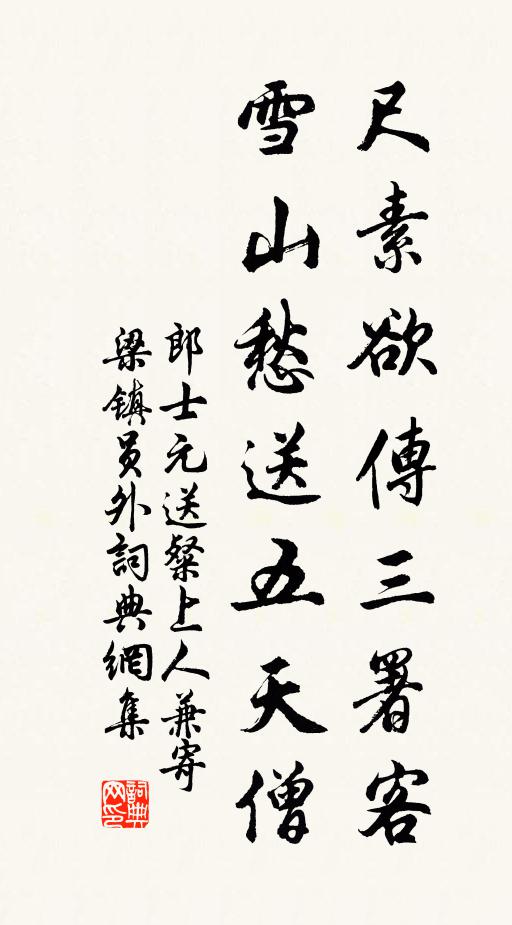 尺素欲傳三署客
雪山愁送五天僧
郎士元送粲上人兼寄
梁鎮員外詞典網集
詞典
网印